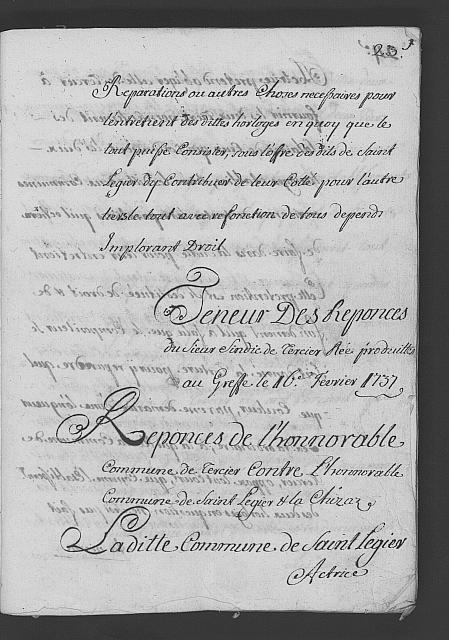 23
Reparations ou autres Choses necessaires pour
l'entretient des dittes horloges en quoy que le
tout puisse Consister, sous l'offre des dits de Saint
Legier d'y Contribuer de leur Cotte pour l'autre
tiers le tout avec refonction de tous depends
Implorant Droit
Teneur Des Reponces
du Sieur Sindic de Tercier Rée produittes
au Greffe le 16e Février 1737
Reponces de l'honnorable
Commune de Tercier Contre L'honnorable
Commune de Saint Legier & la Chizaz
Laditte Commune de Saint Legier
Actrice